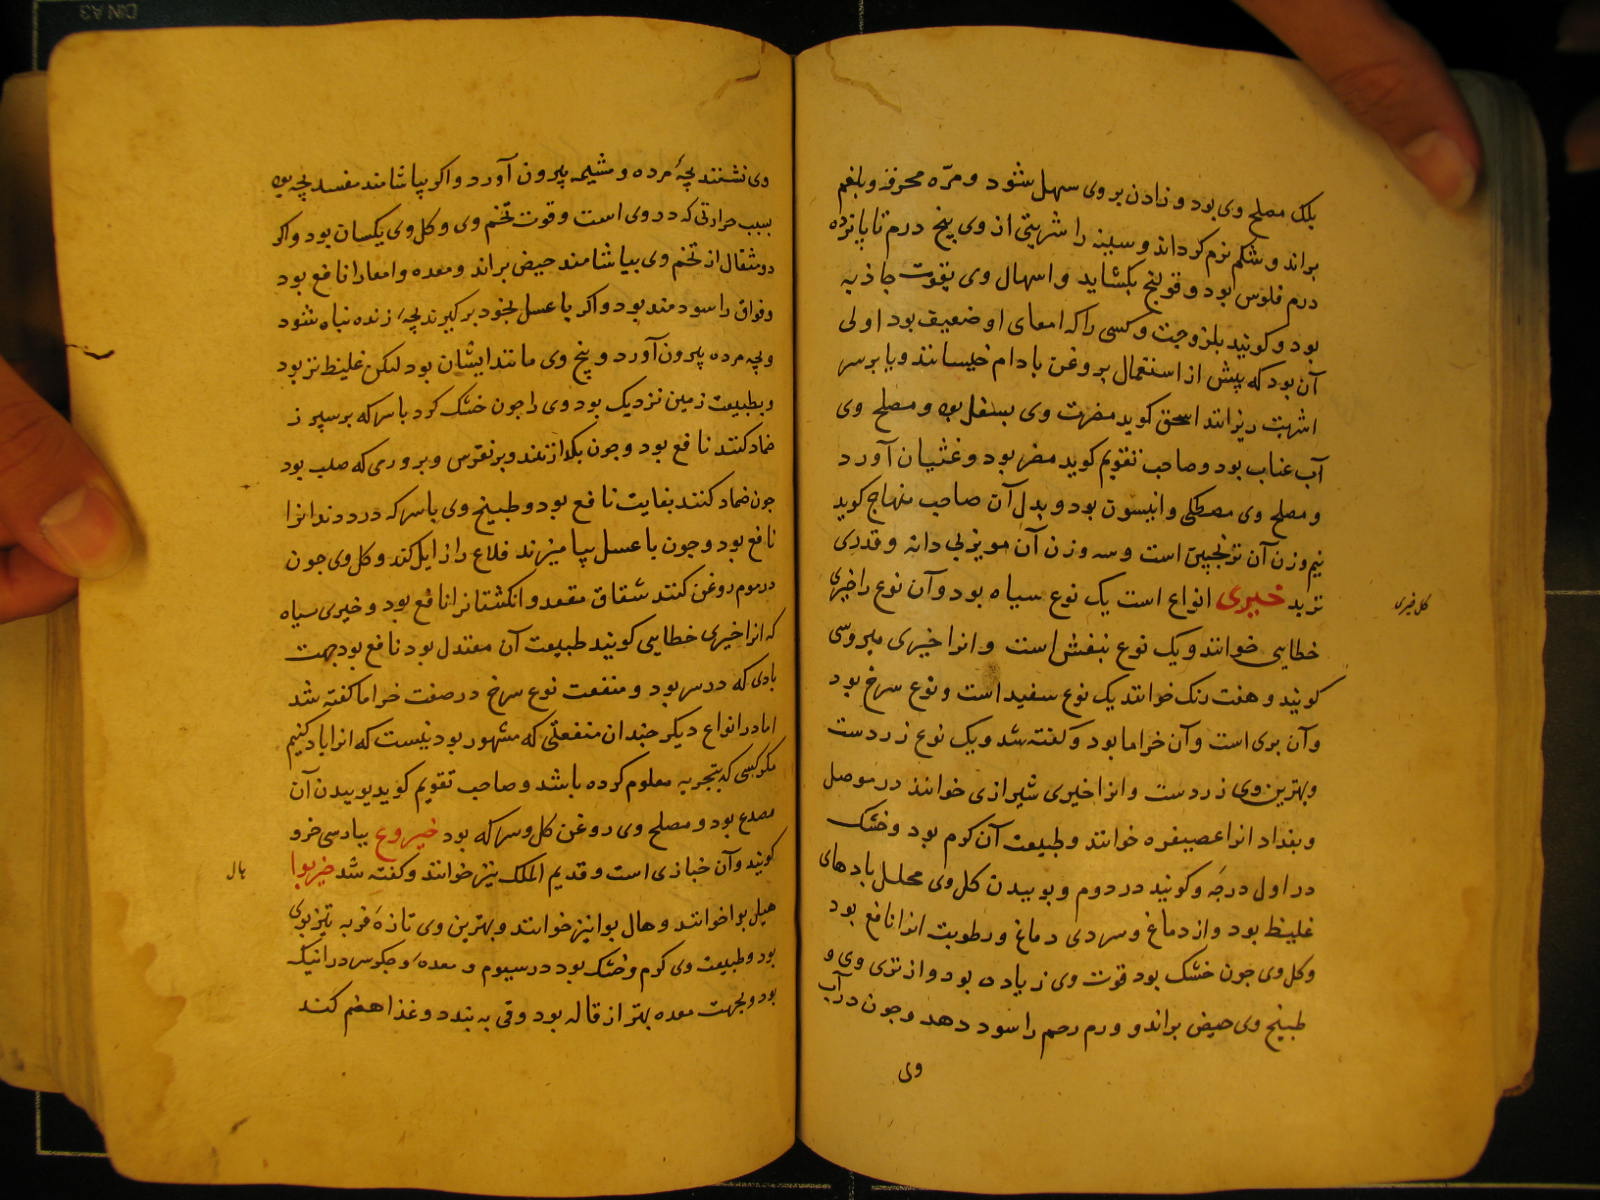 بلک مصلح وی بود و زادن بر وی سهل شود و مرّه محرقه و بلغم
براند و شکم نرم کرداند و سینه را شربتی از وی پنج درم تا پانزده
درم فلوس بود و قولنج بکشاید و اسهال وی بقوت جاذبه
بود و کویند بلزوجت و کسی را که امعای او ضعیف بود اولی
آن بود که پیش از استعمال بروغن بادام خیسانند و یا بر سر
اشربت ریزانند اسحق کوید مضرت وی بسفل بود و مصلح وی
آب عناب بود و صاحب تقویم کوید مضر بود و غثیان آورد
و مصلح وی مصطکی و انیسون بود و بدل آن صاحب منهاج کوید
نیم وزن آن ترنجبین است و سه وزن آن مویز بی دانه و قدری
تربد خیری انواع است یک نوع سیاه بود و آن نوع را خیری
کل خیری
خطایی خوانند و یک نوع بنفش است و انرا خیری میروسی
کویند و هفت رنک خوانند یک نوع سفید است و نوع سرخ بود
و آن بری است و آن خراما بود و کفته شد و یک نوع زردست
و بهترین وی زردست و انرا خیری شیرازی خوانند در موصل
و بغداد انرا عصیفره خوانند و طبیعت آن کرم بود و خشک
در اول درجه و کویند در دوم و بوییدن کل وی محلل بادهای
غلیظ بود و از دماغ و سردی دماغ و رطوبت انرا نافع بود
و کل وی جون خشک بود قوت وی زیاده بود و از تری وی و
طبیخ وی حیض براند و ورم رحم را سود دهد و جون در آب
وی
وی نشنند بچهٔ مرده و مشیمه بیرون آورد و اکر بیاشامند مفسد بچه بود
بسبب حرارتی که در وی است و قوت تخم وی و کل وی یکسان بود و اکر
دو مثقال از تخم وی بیاشامند حیض براند و معده و امعا را نافع بود
و فواق را سودمند بود و اکر با عسل بخود بر کیرند بچهٔ زنده تباه شود
و بچه مرده بیرون آورد و بیخ وی مانند ایشان بود لیکن غلیظ تر بود
و بطبیعت زمین نزدیک بود وی را جون خشک کرد با سرکه بر سپرز
ضماد کنند نافع بود و جون بکدازنند و بر نقرس و بر ورمی که صلب بود
جون ضماد کنند بغایت نافع بود و طبیخ وی با سرکه درد دندانرا
نافع بود و جون با عسل بیامیزند قلاع را زایل کند و کل وی جون
در موم روغن کنند شقاق مقعد و انکشتانرا نافع بود و خیری سیاه
که انرا خیری خطایی کویند طبیعت آن معتدل بود نافع بود جهت
بادی که در سر بود و منفعت نوع سرخ در صفت خراما کفته شد
اما در انواع دیکر جندان منفعتی که مشهور بود نیست که انرا یاد کنیم
مکر کسی که بتجربه معلوم کرده باشد و صاحب تقویم کوید بوییدن آن
مصدع بود و مصلح وی روغن کل و سرکه بود خیروع بپارسی خرو
کویند و آن خبازی است و قدیم الملک نیز خوانند و کفته شد خیربوا
هال
هیل بوا خوانند و هال بوا نیز خوانند و بهترین وی تازه فربه تیز بوی
بود و طبیعت وی کرم و خشک بود در سیوم و معده و جکر سرد را نیک
بود و بجهت معده بهتر از قاله بود و قی به بندد و غذا هضم کند